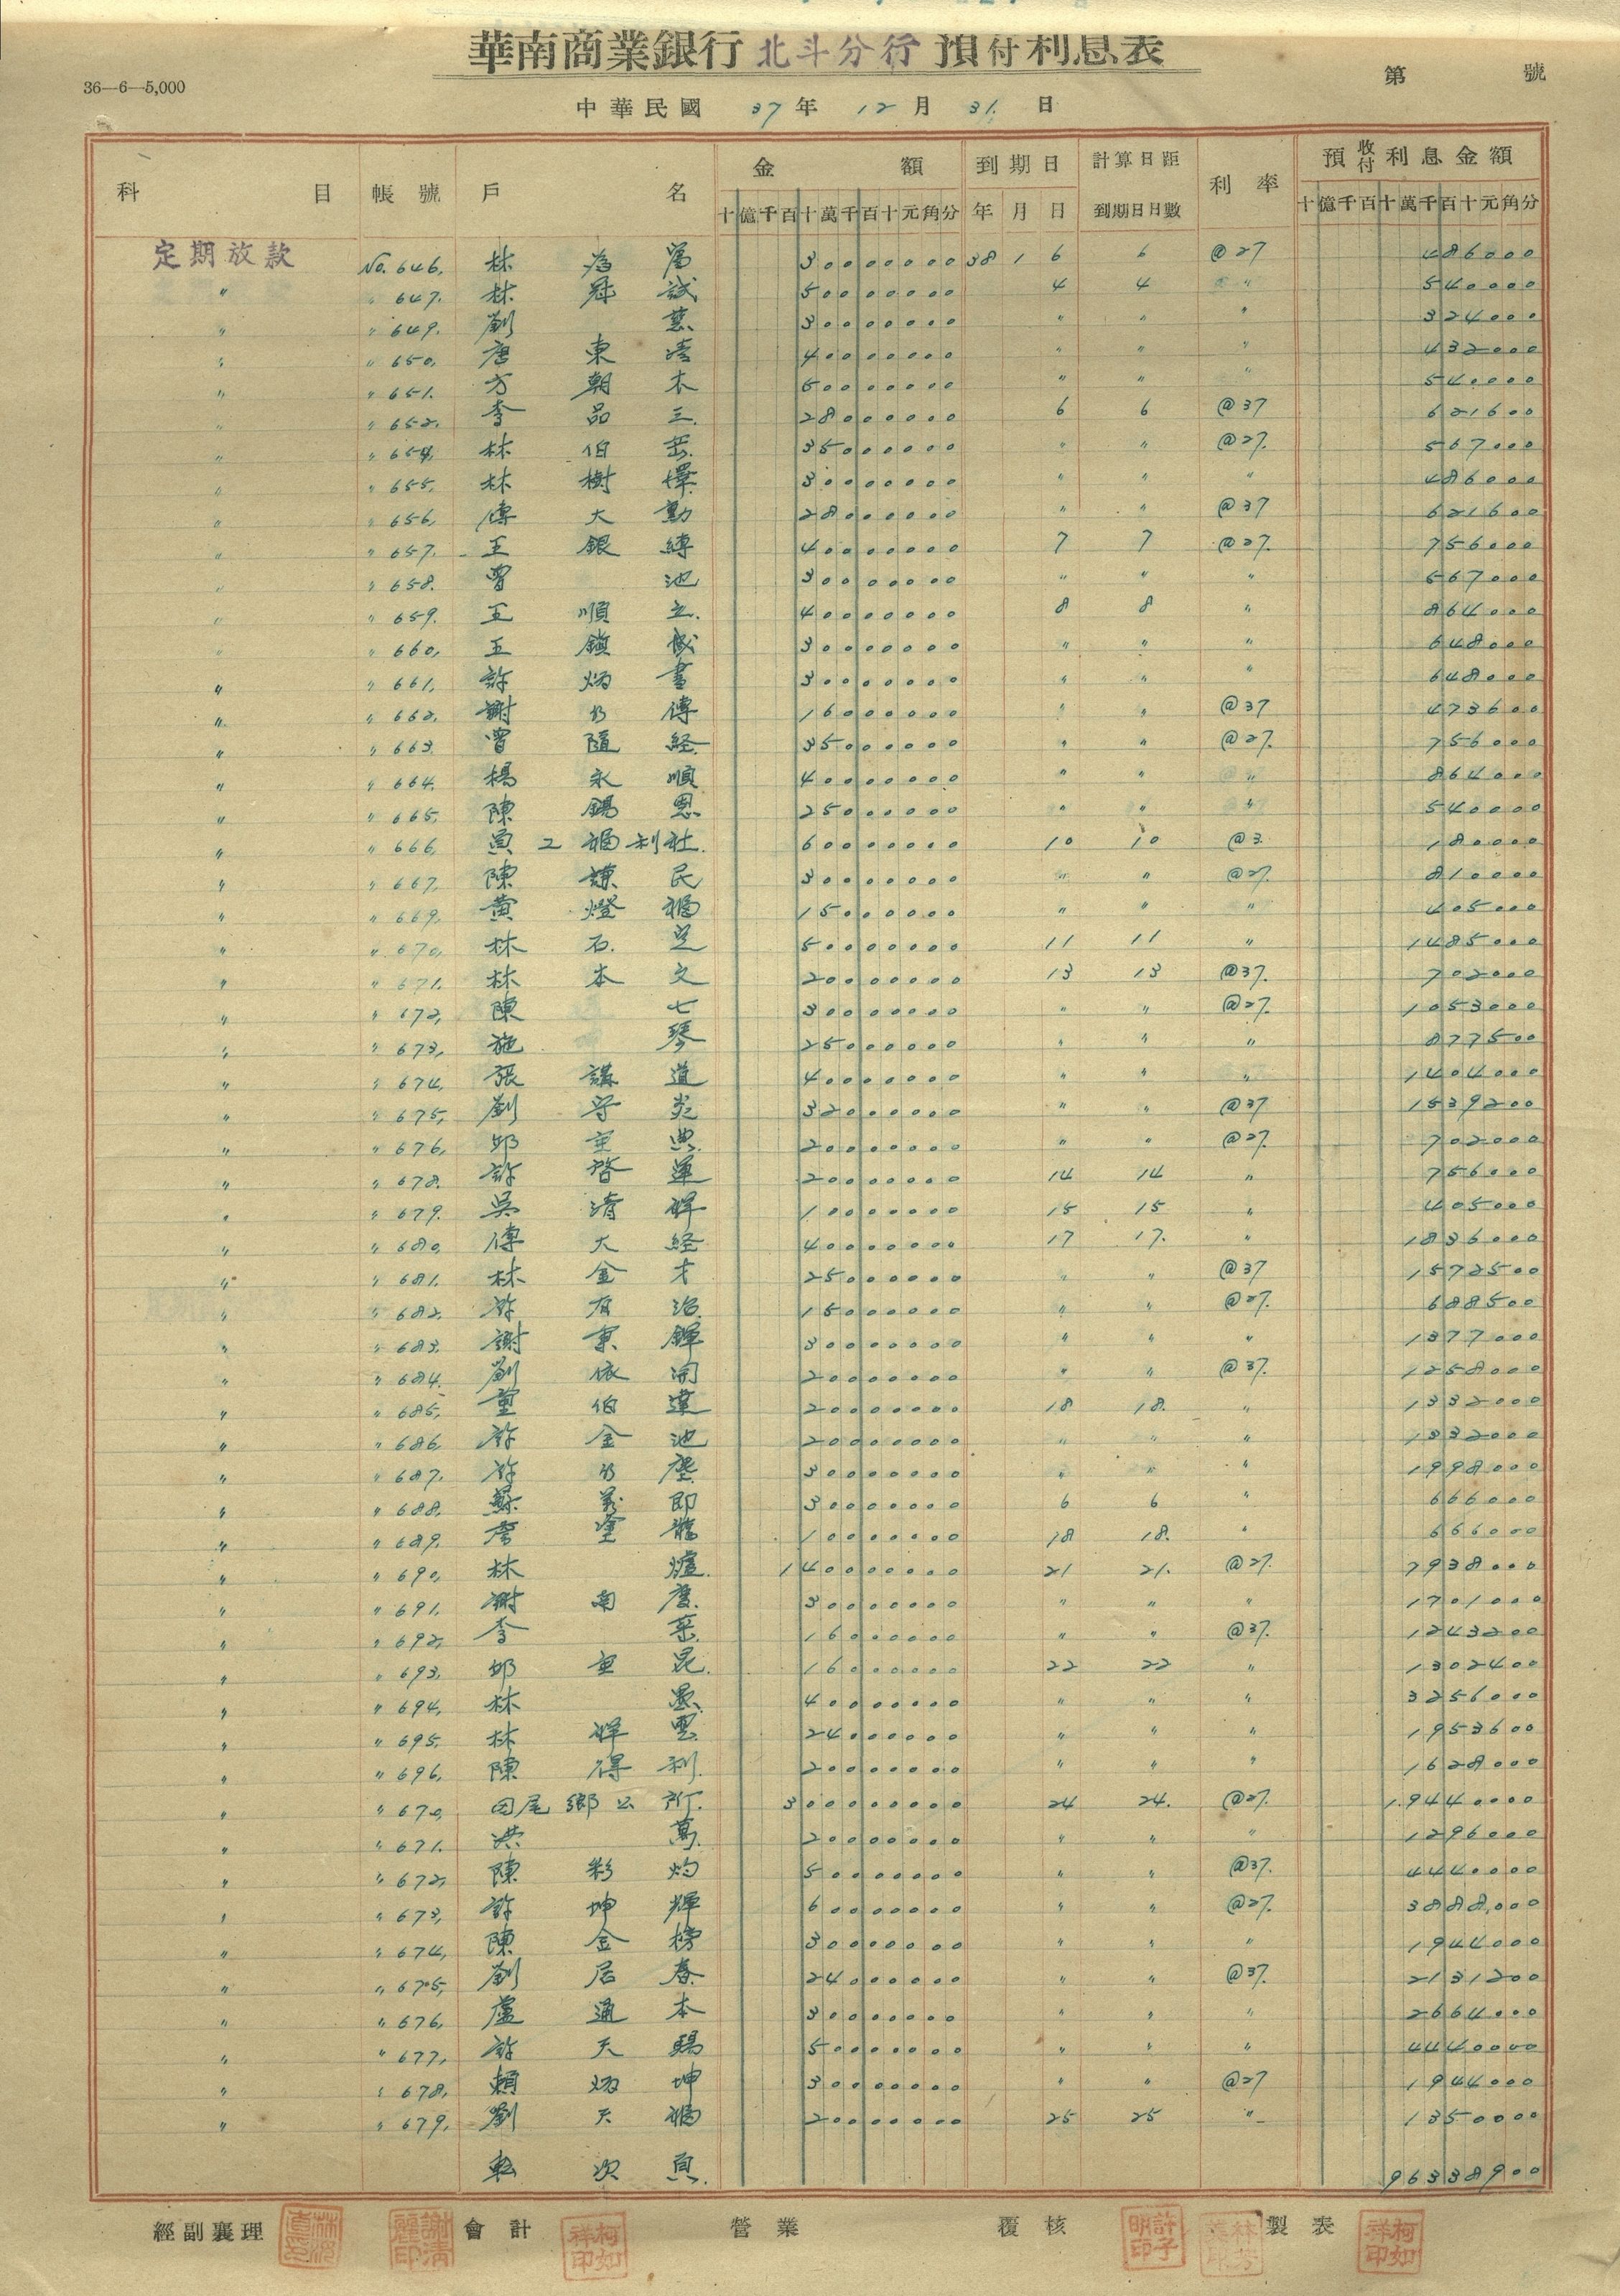 華南商業銀行 北斗分行 預付利息表
36—6—5,000
第 號
中華民國 37年 12月 31日
科目 帳號 戶名 金額 到期日 計算日距 利率 預收付利息金額
十億千百十萬千百十元角分 年月日 到期日日數 十億千百十萬千百十元角分
定期放款 No. 646. 林為 300000000 38 1 6 6 @27 486000
〃 〃 647. 林冠誠 500000000 4 4 〃 540000
〃 〃 649. 劉 300000000 〃 〃 〃 324000
〃 〃 650. 唐東 400000000 〃 〃 〃 432000
〃 〃 651. 方朝木 500000000 〃 〃 〃 540000
〃 〃 652. 李品三 28000000 6 6 @37 621600
〃 〃 654. 林伯 35000000 〃 〃 @27. 567000
〃 〃 655. 林樹 300000000 〃 〃 〃 486000
〃 〃 656. 傅大勳 28000000 〃 〃 @37 621600
〃 〃 657. 王銀縛 400000000 7 7 @27. 756000
〃 〃 658. 曾池 300000000 〃 〃 〃 567000
〃 〃 659. 王順立 400000000 8 8 〃 864000
〃 〃 660. 王鎮 300000000 〃 〃 〃 648000
〃 〃 661. 許炳書 300000000 〃 〃 〃 648000
〃 〃 662. 謝乃傳 16000000 〃 〃 @37 473600
〃 〃 663. 曾隨經 35000000 〃 〃 @27. 756000
〃 〃 664. 楊永順 400000000 〃 〃 〃 864000
〃 〃 665. 陳錫恩 25000000 〃 〃 〃 540000
〃 〃 666. 員工福利社 600000000 10 10 @3. 180000
〃 〃 667. 陳謙民 300000000 〃 〃 @27. 810000
〃 〃 669. 黃燈福 15000000 〃 〃 〃 405000
〃 〃 670. 林石 500000000 11 11 〃 1485000
〃 〃 671. 林本文 20000000 13 13 @37. 702000
〃 〃 672. 陳七 300000000 〃 〃 @27. 1053000
〃 〃 673. 施琴 25000000 〃 〃 〃 877500
〃 〃 674. 張講道 400000000 〃 〃 〃 1404000
〃 〃 675. 劉守炎 32000000 〃 〃 @37 1539200
〃 〃 676. 邱重典 200000000 〃 〃 @27. 702000
〃 〃 678. 許啓運 200000000 14 14 〃 756000
〃 〃 679. 吳清輝 100000000 15 15 〃 405000
〃 〃 680. 傅大經 400000000 17 17. 〃 1836000
〃 〃 681. 林金才 25000000 〃 〃 @37 1572500
〃 〃 682. 許有治 15000000 〃 〃 @27. 688500
〃 〃 683. 謝東鐸 300000000 〃 〃 〃 1377000
〃 〃 684. 劉依 200000000 〃 〃 @37. 1258000
〃 〃 685. 董伯達 200000000 18 18. 〃 1332000
〃 〃 686. 許金池 200000000 〃 〃 〃 1332000
〃 〃 687. 許乃 300000000 〃 〃 〃 1998000
〃 〃 688. 蘇即 300000000 6 6 〃 666000
〃 〃 689. 詹塗 100000000 18 18. 〃 666000
〃 〃 690. 林爐 1400000000 21 21. @27. 7938000
〃 〃 691. 謝南慶 300000000 〃 〃 〃 1701000
〃 〃 692. 李 16000000 〃 〃 @37. 1243200
〃 〃 693. 邱重昆 16000000 22 22 〃 1302400
〃 〃 694. 林 400000000 〃 〃 〃 3256000
〃 〃 695. 林輝雲 24000000 〃 〃 〃 1953600
〃 〃 696. 陳得利 200000000 〃 〃 〃 1628000
〃 〃 670. 田尾鄉公所 3000000000 24 24. @27. 19440000
〃 〃 671. 洪萬 200000000 〃 〃 〃 1296000
〃 〃 672. 陳彩灼 500000000 〃 〃 @37. 4440000
〃 〃 673. 許坤輝 600000000 〃 〃 @27. 3888000
〃 〃 674. 陳金榜 300000000 〃 〃 〃 1944000
〃 〃 675. 劉居春 24000000 〃 〃 @37. 2131200
〃 〃 676. 盧通本 300000000 〃 〃 〃 2664000
〃 〃 677. 許天賜 500000000 〃 〃 〃 4440000
〃 〃 678. 賴炳坤 300000000 〃 〃 @27 1944000
〃 〃 679. 劉天福 200000000 25 25 〃 1350000
転次頁 96338900
經副襄理 會計 營業 覆核 製表